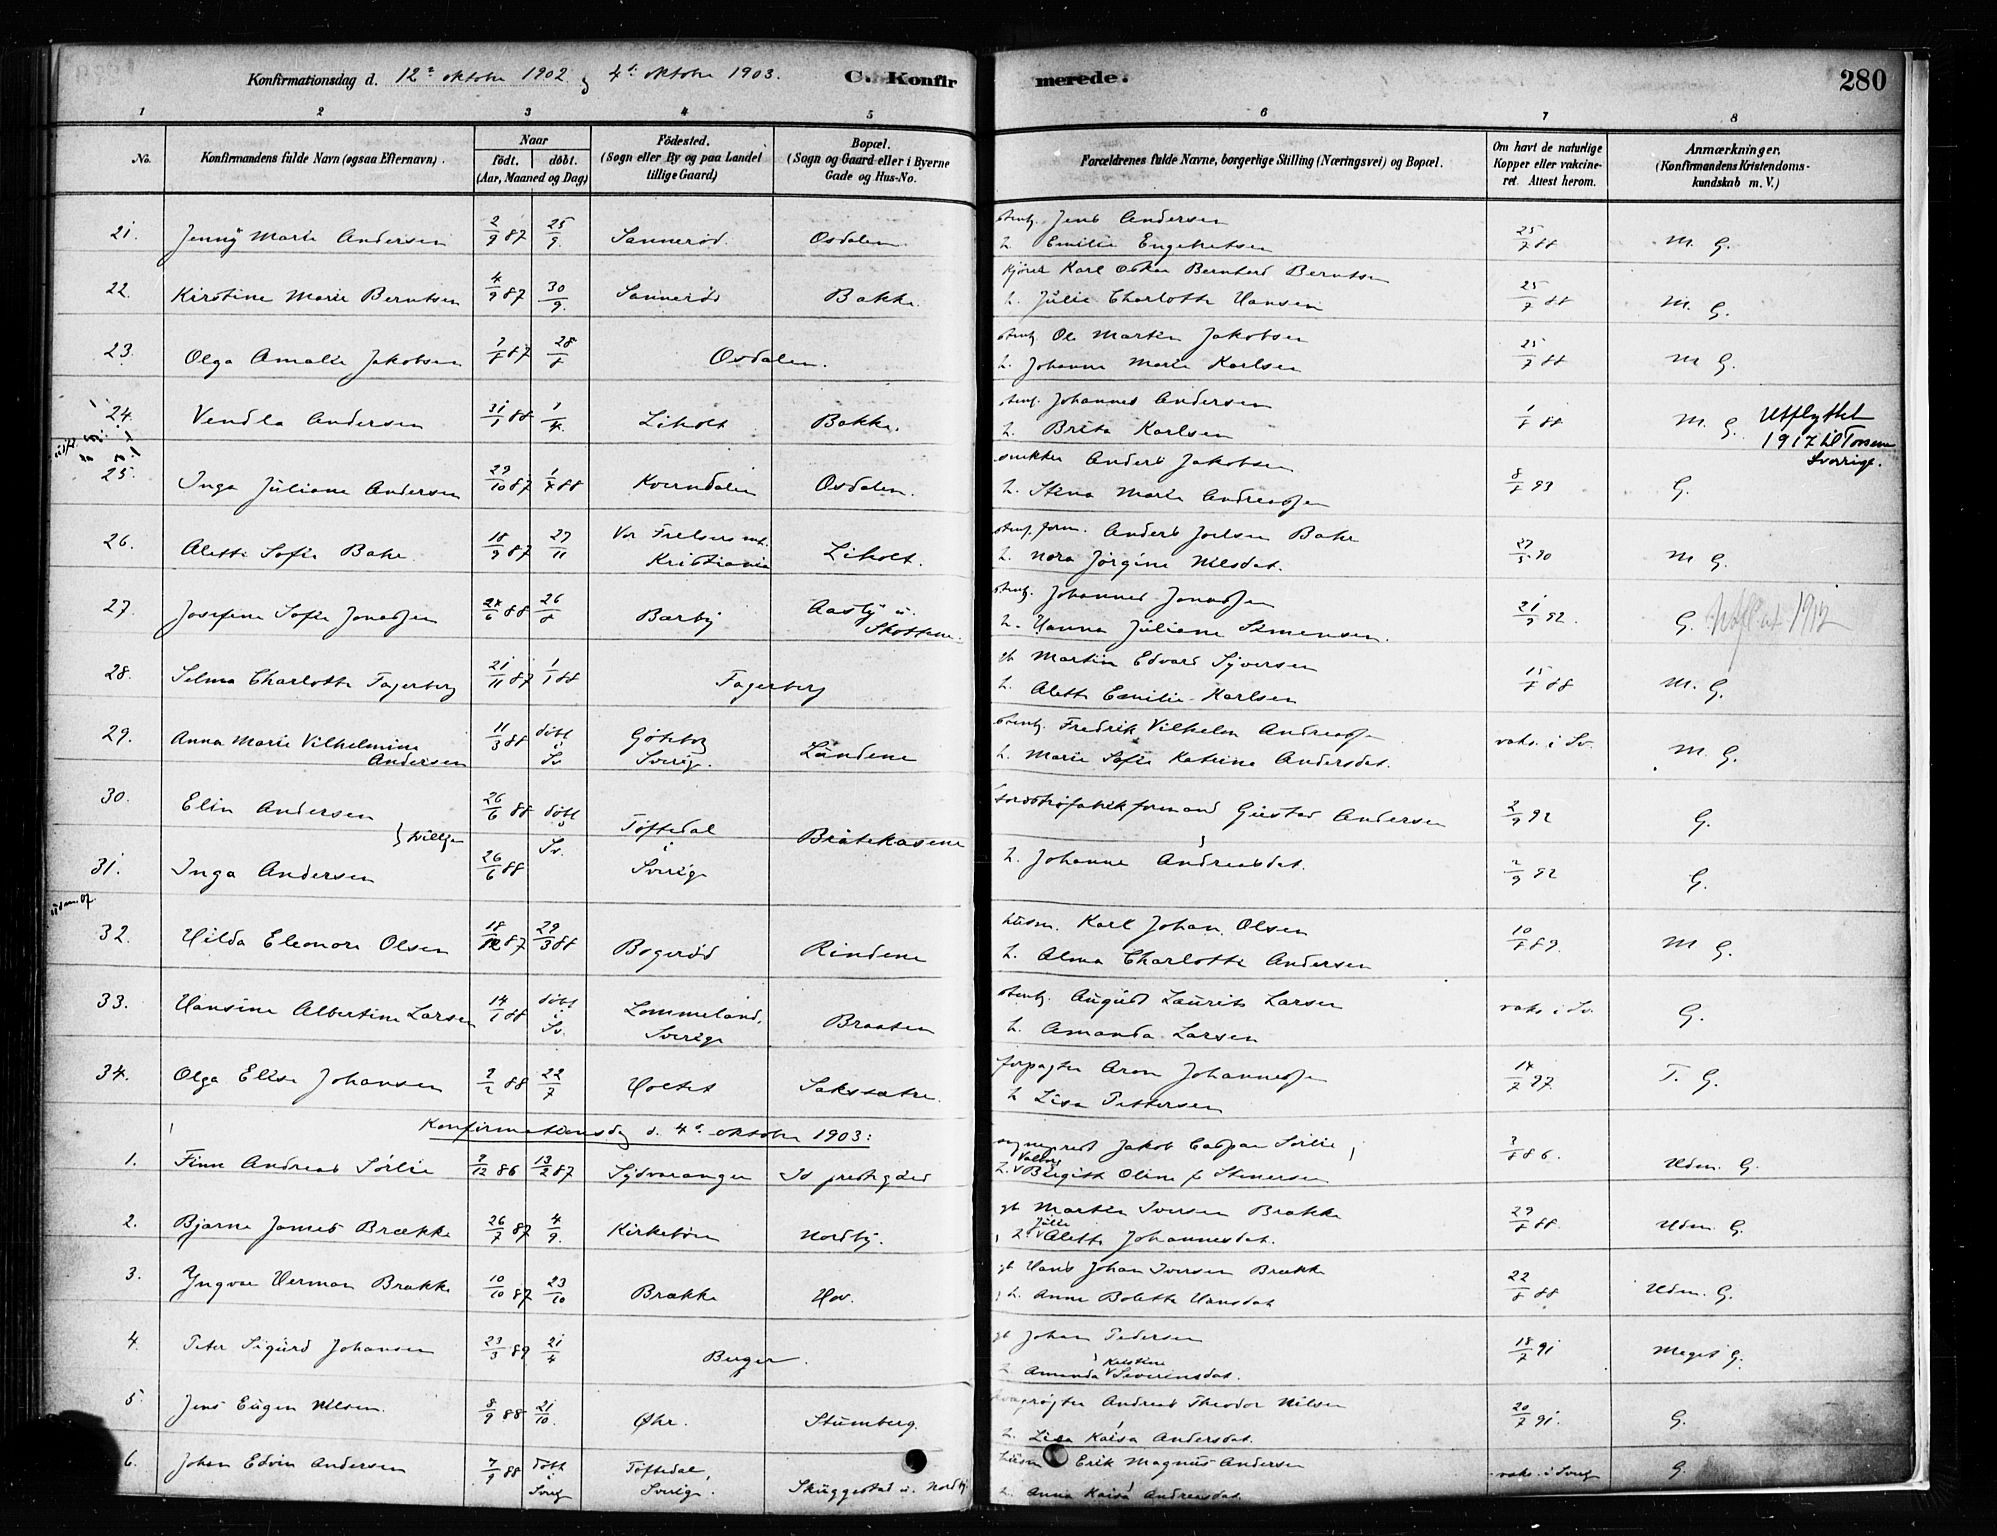 Konfirmationsdag d. 12te oktober 1902 og 4de oktober 1903. C. Konfirmerede. 280
1 2 3 4 5 6 7 8
No. Konfirmandens fulde Navn (ogsaa Efternavn). Naar født. døbt. (Aar, Maaned og Dag) Fødested. (Sogn eller By og paa Landet tillige Gaard) Bopæl. (Sogn og Gaard eller i Byerne Gade og Hus-No. Forældrenes fulde Navne, borgerlige Stilling (Næringsvei) og Bopæl. Om havt de naturlige Kopper eller vakcineret. Attest herom. Anmærkninger. (Konfirmandens Kristendomskundskab m. V.)
21. Jenny Marie Andersen 2/9 87 25/9. Sannerød. Osdalen stenh. Jens Andersen
h. Emilie Engebretsen 25/7 88 M. G.
22. Kirstine Marie Berntsen 4/9 87 30/9. Sannerød Bakke. Karl Oskar Bernhard Berntsen
h. Julie Charlotte Hansen 25/7 88 M. G.
23. Olga Amalie Jakobsen 7/8 87 28/8 Osdalen. stenh. Ole Martin Jakobsen
h. Johanne Marie Karlsen 25/7 88 M G.
24. Vendla Andersen 31/1 88 Liholt Bakke. stenh. Johannes Andersen
h. Brita Karlsen 1/8 88 M. G. Utflyttet
1917 til
Sverrige.
25. Inga Juliane Andersen 29/10 87 1/4 88 Kverndalen Osdalen. snekker Anders Jakobsen
h. Stina Marie Andreassen 8/8 93 G.
26. Alette Sofie Bake 18/9 87 27/11 Vor Frelsers mt. Kristiania Liholt. stenh. form. Anders Joelsen Bake
h. Nora Jørgine Nilsdat. 27/5 90 M G.
27. Josefine Sofie Jonassen 24/6 88 26/8 Barby Aasly u. Skottene. stenh. Johannes Jonassen
h. Hanna Juliane Simensen. 21/9 92. G. 1912
28. Selma Charlotte Fagerberg 21/11 87 1/1 88 Fagerberg gb Martin Edvard Syversen
h. Alette Emilie Karlsen 15/7 88 M. G.
29. Anna Marie Vilhelmine Andersen 11/3 88 døbt i Sv Göteborg Sverig. Landene stenh. Fredrik Vilhelm Andreassen
h. Marie Sofie Katrine Andersdat. vaks. i Sv. M. G.
30. Elin Andersen 26/6 88 døbt i Sv. Töftedal i Sverige Bråtekasene Gustav Andersen 2/9 92 G.
} tvillger
31. Inga Andersen 26/6 88 h. Johanne Andreasdat. 2/9 92 G.
32. Hilda Eleonore Olsen 18/12 87 29/3 88 Bogerød Rindene husm. Karl Johan Olsen
h. Alma Charlotte Andersen 10/8 89. M G.
33. Hansine Albertine Larsen 14/1 88 døbt i Sv. Lommeland, Sverige Braaten stenh. August Laurits Larsen
h. Amanda Larsen vaks i Sv. G.
34. Olga Elise Johansen 2/2 88 22/7 Holtet Sakssætre. forpagter Aron Johannessen
h Lisa Pettersen 14/7 97. T. G.
Konfirmationsdag d. 4de oktober 1903:
1. Finn Andreas Sørlie 2/12 86 13/2 87 Sydvaranger Id prestegård sogneprest Jakob Caspar Sørlie
h. Valborg Birgitte Oline f. Stenersen 3/8 86. Udm. G.
2. Bjarne James Brække 26/7 87 4/9. Kirkebøen Nordby. gb Martin Iversen Brække
h. Julie Alette Johannesdat. 29/8 88 Udm. G.
3. Yngvar Herman Brække 10/10 87 23/10 Brække Hov. gb Hans Johan Iversen Brække
h. Anne Bolette Hansdat 22/8 88 Udm. G.
4. Peter Sigurd Johansen 23/3 89 21/4 Berger. gb Johan Pedersen
h Amanda Kristine Severinsdat. 18/7 91 Meget G.
5 Jens Eugen Nilsen. 8/9 88 21/10. Øhr. Stumberg. Andreas Theodor Nilsen
h. Lisa Kaisa Andersdat. 20/7 91. G.
6. Johan Edvin Andersen 7/9 88 Døbt i Sverig Töftedal, Sverige. Skuggestad u. Nordby husm Erik Magnus Andersen
h. Anna Kaisa Andreasdat. vaks. i Sverig G.